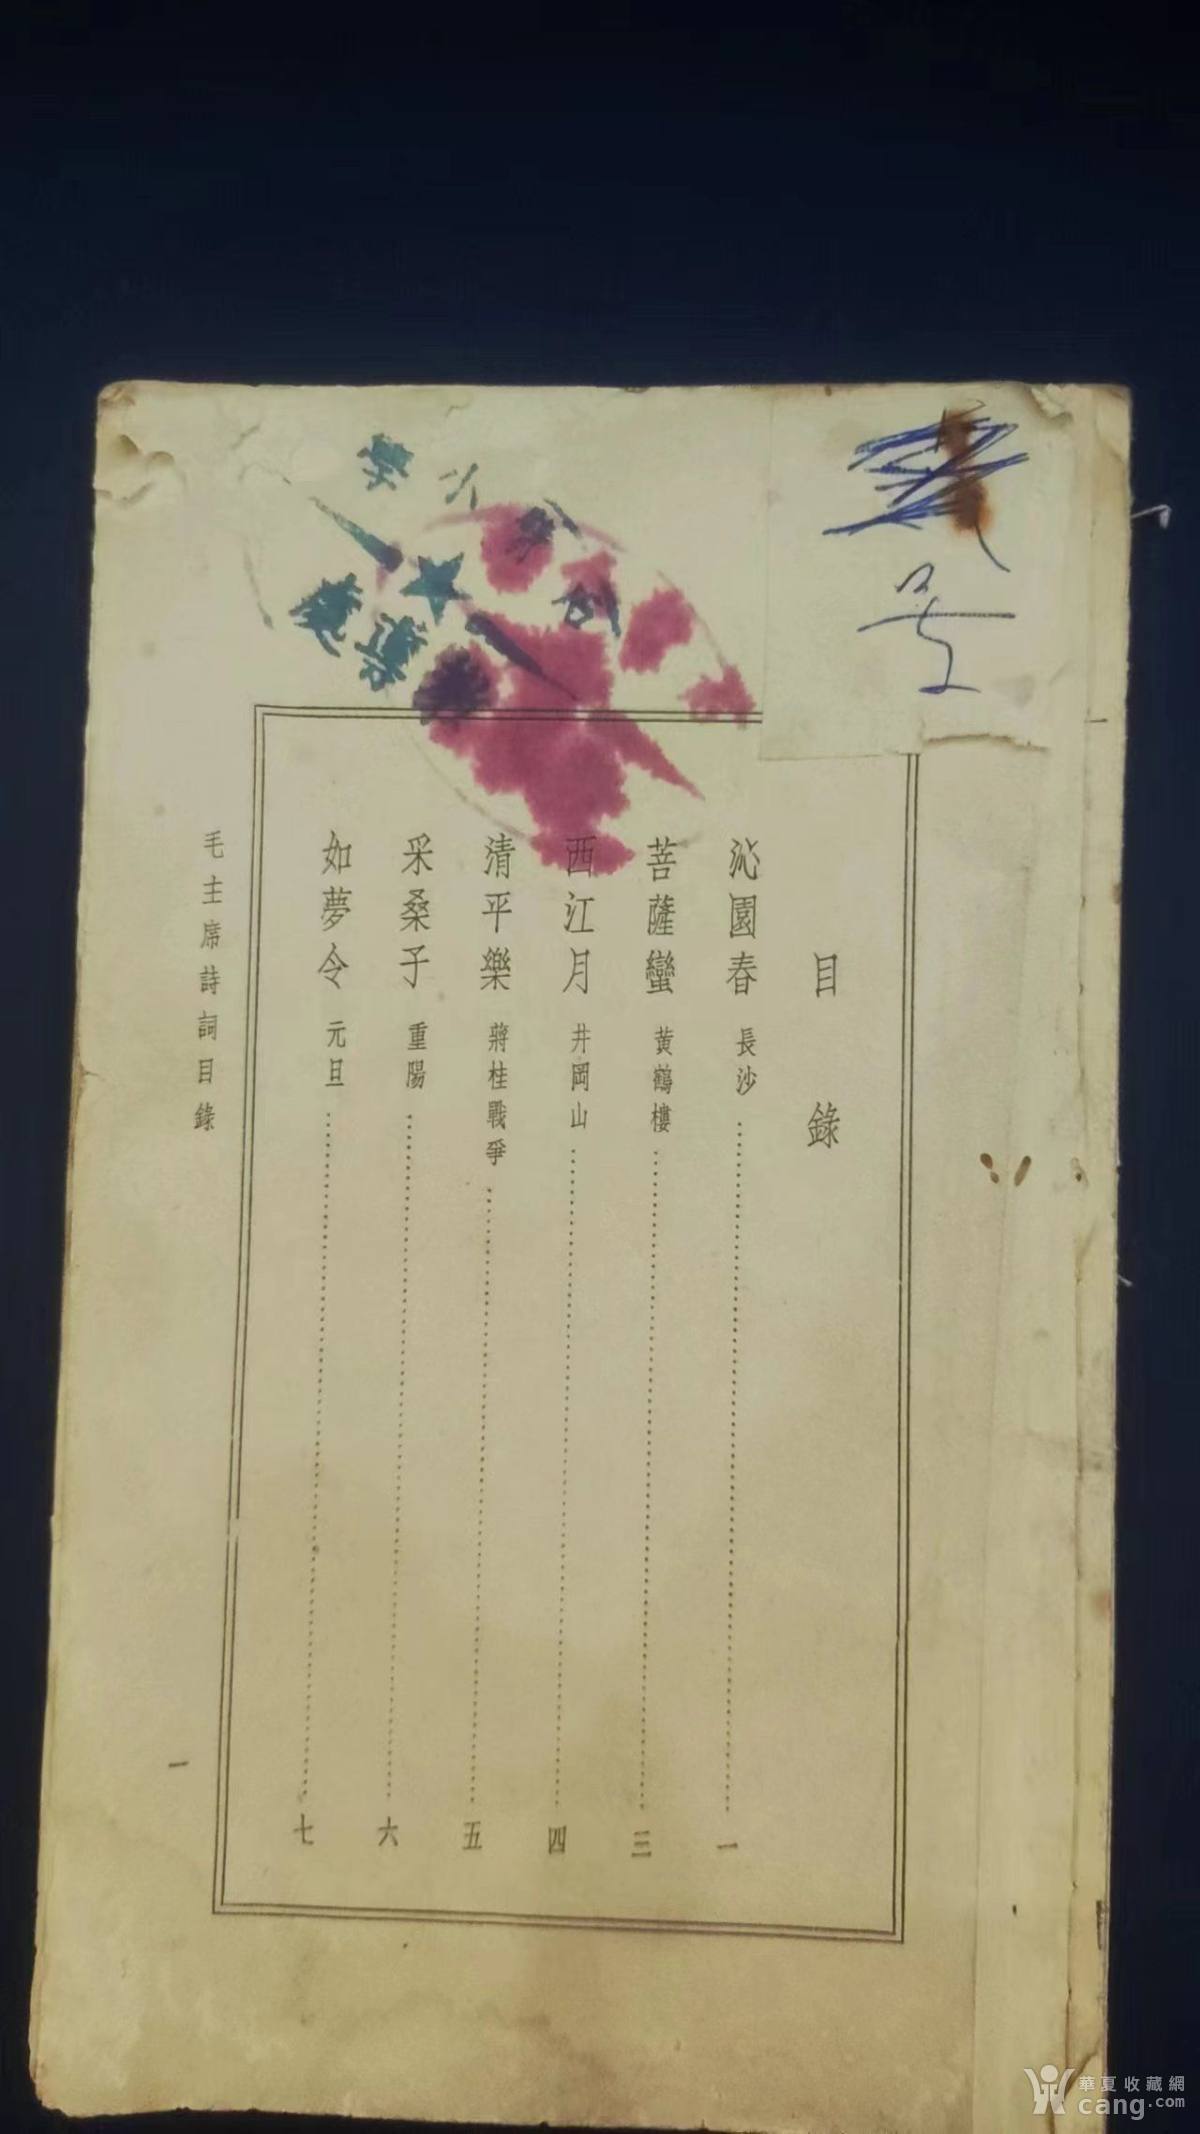 目錄
沁園春 長沙 一
菩薩蠻 黃鶴樓 三
西江月 井岡山 四
清平樂 蔣桂戰爭 五
采桑子 重陽 六
如夢令 元旦 七
毛主席詩詞目錄 一
華夏收藏網
cang.com